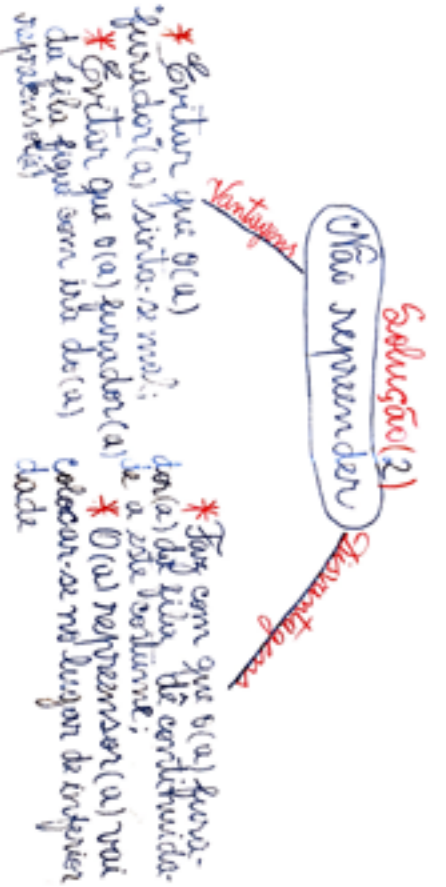 Solução(2)
Não repreender
Vantagens
* Evitar que o(a)
"furador"(a) sinta-se mal;
* Evitar que o(a) furador(a)
da fila fique com ira do(a)
repreensor(a)
Disvantagens
* Faz com que o(a) fura-
dor(a) da fila dê continuida-
de a este costume;
* O(a) repreensor(a) vai
colocar-se no lugar de inferior
dade